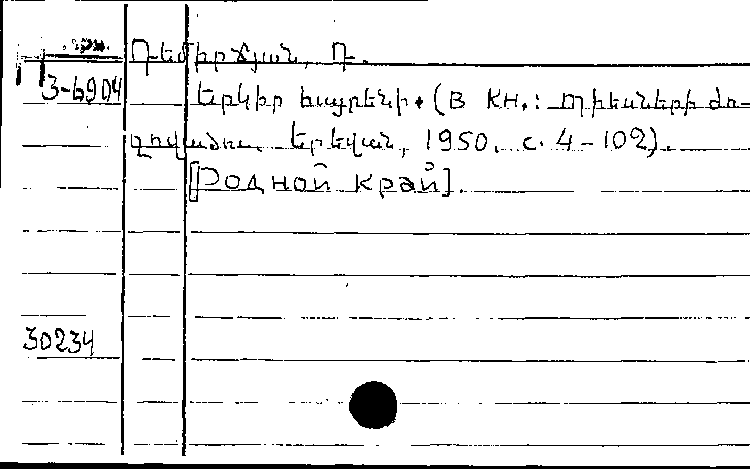 Դեմիրճյան, Դ.
3-6904
Երկիր հայրենի. (В кн.: Պիեսների ժո-
ղովածու. Երեվան, 1950. с. 4-102).
[Родной край].
30234